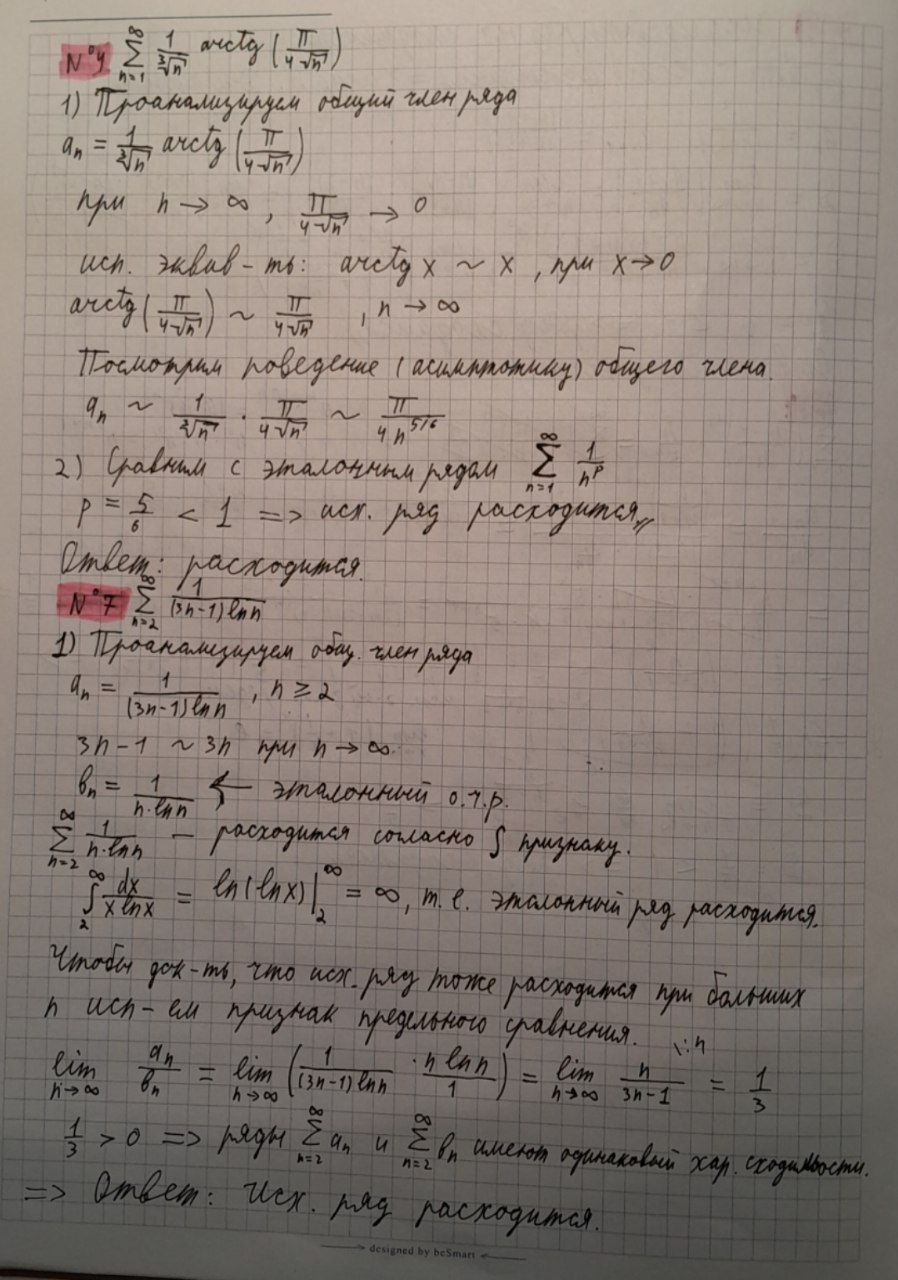 N°4 $\sum_{n=1}^{\infty} \frac{1}{\sqrt[3]{n}} arctg \left(\frac{\pi}{4\sqrt{n}}\right)$
1) Проанализируем общий член ряда
$a_n = \frac{1}{\sqrt[3]{n}} arctg \left(\frac{\pi}{4\sqrt{n}}\right)$
при $n \to \infty$, $\frac{\pi}{4\sqrt{n}} \to 0$
исп. эквив-ть: $arctg x \sim x$, при $x \to 0$
$arctg\left(\frac{\pi}{4\sqrt{n}}\right) \sim \frac{\pi}{4\sqrt{n}}$, $n \to \infty$
Посмотрим поведение (асимптотику) общего члена.
$a_n \sim \frac{1}{\sqrt[3]{n}} \cdot \frac{\pi}{4\sqrt{n}} \sim \frac{\pi}{4n^{5/6}}$
2) Сравним с эталонным рядом $\sum_{n=1}^{\infty} \frac{1}{n^p}$
$p = \frac{5}{6} < 1$ => исх. ряд расходится,,
Ответ: расходится.
N°7 $\sum_{n=2}^{\infty} \frac{1}{(3n-1)\ln n}$
1) Проанализируем общ. член ряда
$a_n = \frac{1}{(3n-1)\ln n}$, $n \geq 2$
$3n-1 \sim 3n$ при $n \to \infty$
$b_n = \frac{1}{n \cdot \ln n}$ ← эталонный о.ч.р.
$\sum_{n=2}^{\infty} \frac{1}{n \cdot \ln n}$ — расходится согласно ∫ признаку.
$\int_2^{\infty} \frac{dx}{x \ln x} = \ln(\ln x)\big|_2^{\infty} = \infty$, т.е. эталонный ряд расходится.
Чтобы док-ть, что исх. ряд тоже расходится при больших
n исп-ем признак предельного сравнения.
$\lim_{n \to \infty} \frac{a_n}{b_n} = \lim_{n \to \infty} \left(\frac{1}{(3n-1)\ln n} \cdot \frac{n \ln n}{1}\right) = \lim_{n \to \infty} \frac{n}{3n-1} \backslash :n = \frac{1}{3}$
$\frac{1}{3} > 0$ => ряды $\sum_{n=2}^{\infty} a_n$ и $\sum_{n=2}^{\infty} b_n$ имеют одинаковый хар. сходимости.
=> Ответ: Исх. ряд расходится.
designed by beSmart